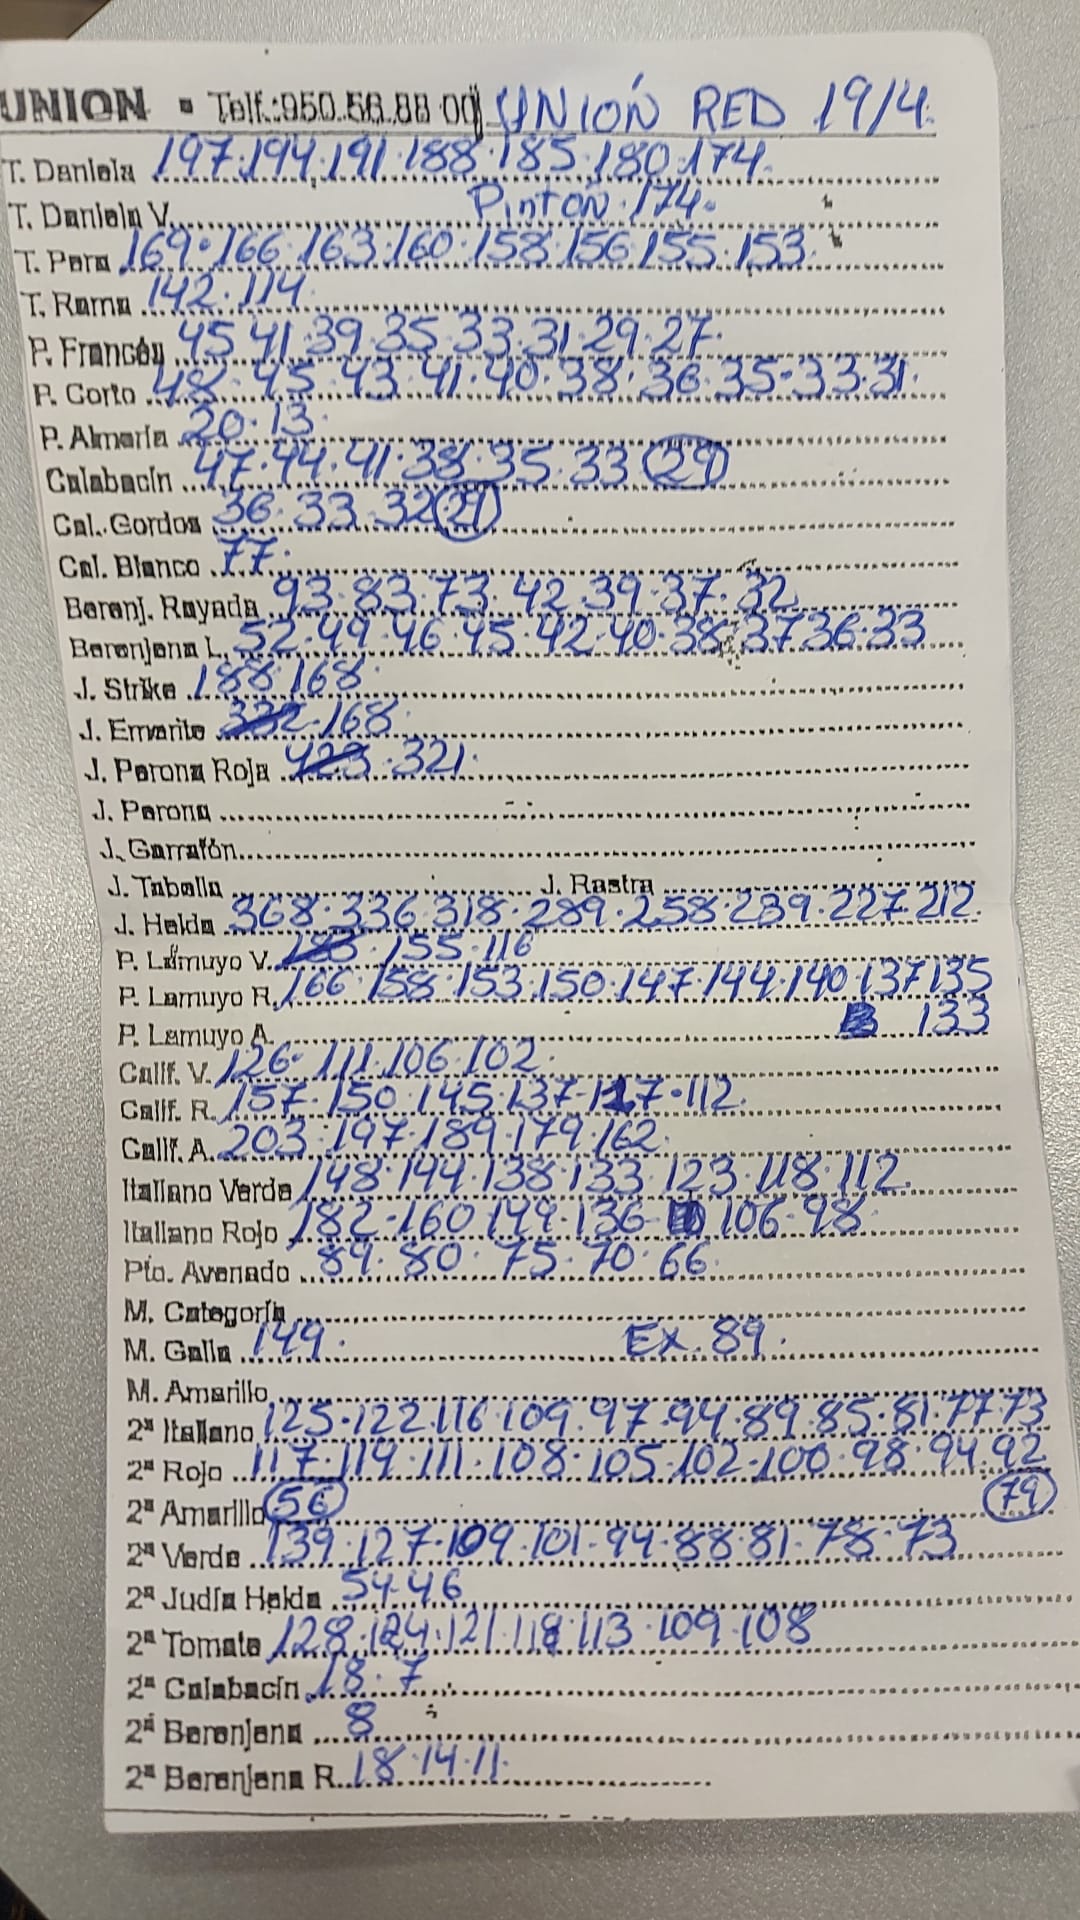 UNION - Telf.:950.56.88 00 UNIÓN RED 19/4.
T. Daniela 197·194·191·188·185·180·174.
T. Daniela V. Pintón·174.
T. Pera 169·166·163·160·158·156·155·153
T. Rama 142·114
P. Francés 45 41·39·35·33·31·29·27·
P. Corto 48·45·43·41·40·38·36·35·33·31·
P. Almería 20·13·
Calabacín 47·44·41·38·35·33 (29)
Cal. Gordos 36·33·32
Cal. Blanco 77·
Berenj. Rayada 93·83·73·42·39·37·32
Berenjena L. 52·49·46·45·42·40·38·37 36·33
J. Strike 188·168
J. Emerite 332·168·
J. Perona Roja 423·321·
J. Perona
J. Garrafón
J. Tabella J. Rastra
J. Helda 368·336·318·289·258·239·227·212
P. Lamuyo V. 155·116
P. Lamuyo R. 166·158·153·150·147·144·140·137 135
P. Lamuyo A. 133
Calif. V. 126·111·106·102·
Calif. R. 157·150·145·137·127·112
Calif. A. 203·197·189·179·162
Italiano Verde 148·144·138·133·123·118·112
Italiano Rojo 182·160 149·136· 106·98
Pto. Avenado 89·80·75·70·66
M. Categoría
M. Galia 149· EX. 89·
M. Amarillo
2ª Italiano 125·122·116·109·97·94·89·85·81·77·73
2ª Rojo 117·114·111·108·105·102·100·98·94·92
2ª Amarillo (56) (79)
2ª Verde 139·127·109·101·94·88·81·78·73
2ª Judía Helda 54·46
2ª Tomate 128·124·121·118·113·109·108
2ª Calabacín 18·7
2ª Berenjena 8
2ª Berenjena R. 18·14·11·